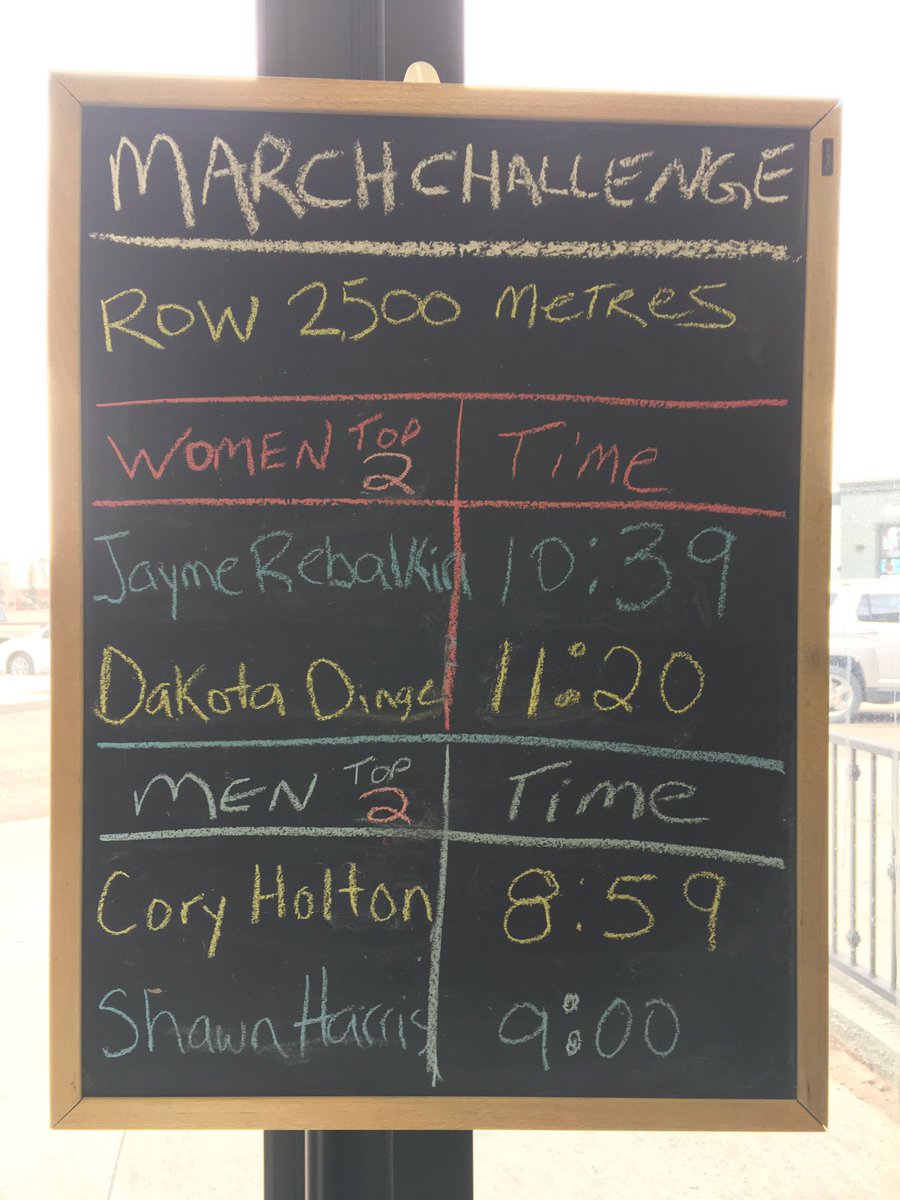 MARCH CHALLENGE
ROW 2500 METRES
WOMEN TOP 2 Time
Jayme Rebalkin 10:39
Dakota Dinge 11:20
MEN TOP 2 Time
Cory Holton 8:59
Shawn Harris 9:00